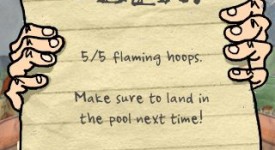 5/5 flaming hoops.
Make sure to land in
the pool next time!